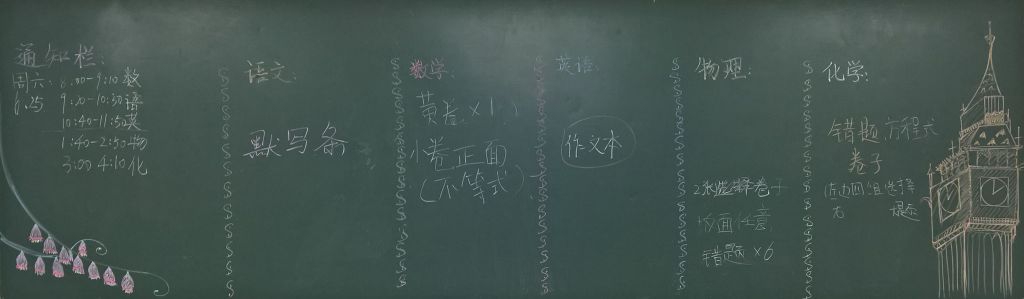 通知栏:
周六: 8:00-9:10 数
6.25 9:20-10:30 语
10:40-11:50 英
1:40-2:50 物
3:00 4:10 化
语文:
默写条
数学:
黄卷×1
小卷正面
(不等式)
英语:
作文本
物理:
2张选择卷子
反面任意
错题×6
化学:
错题方程式
卷子